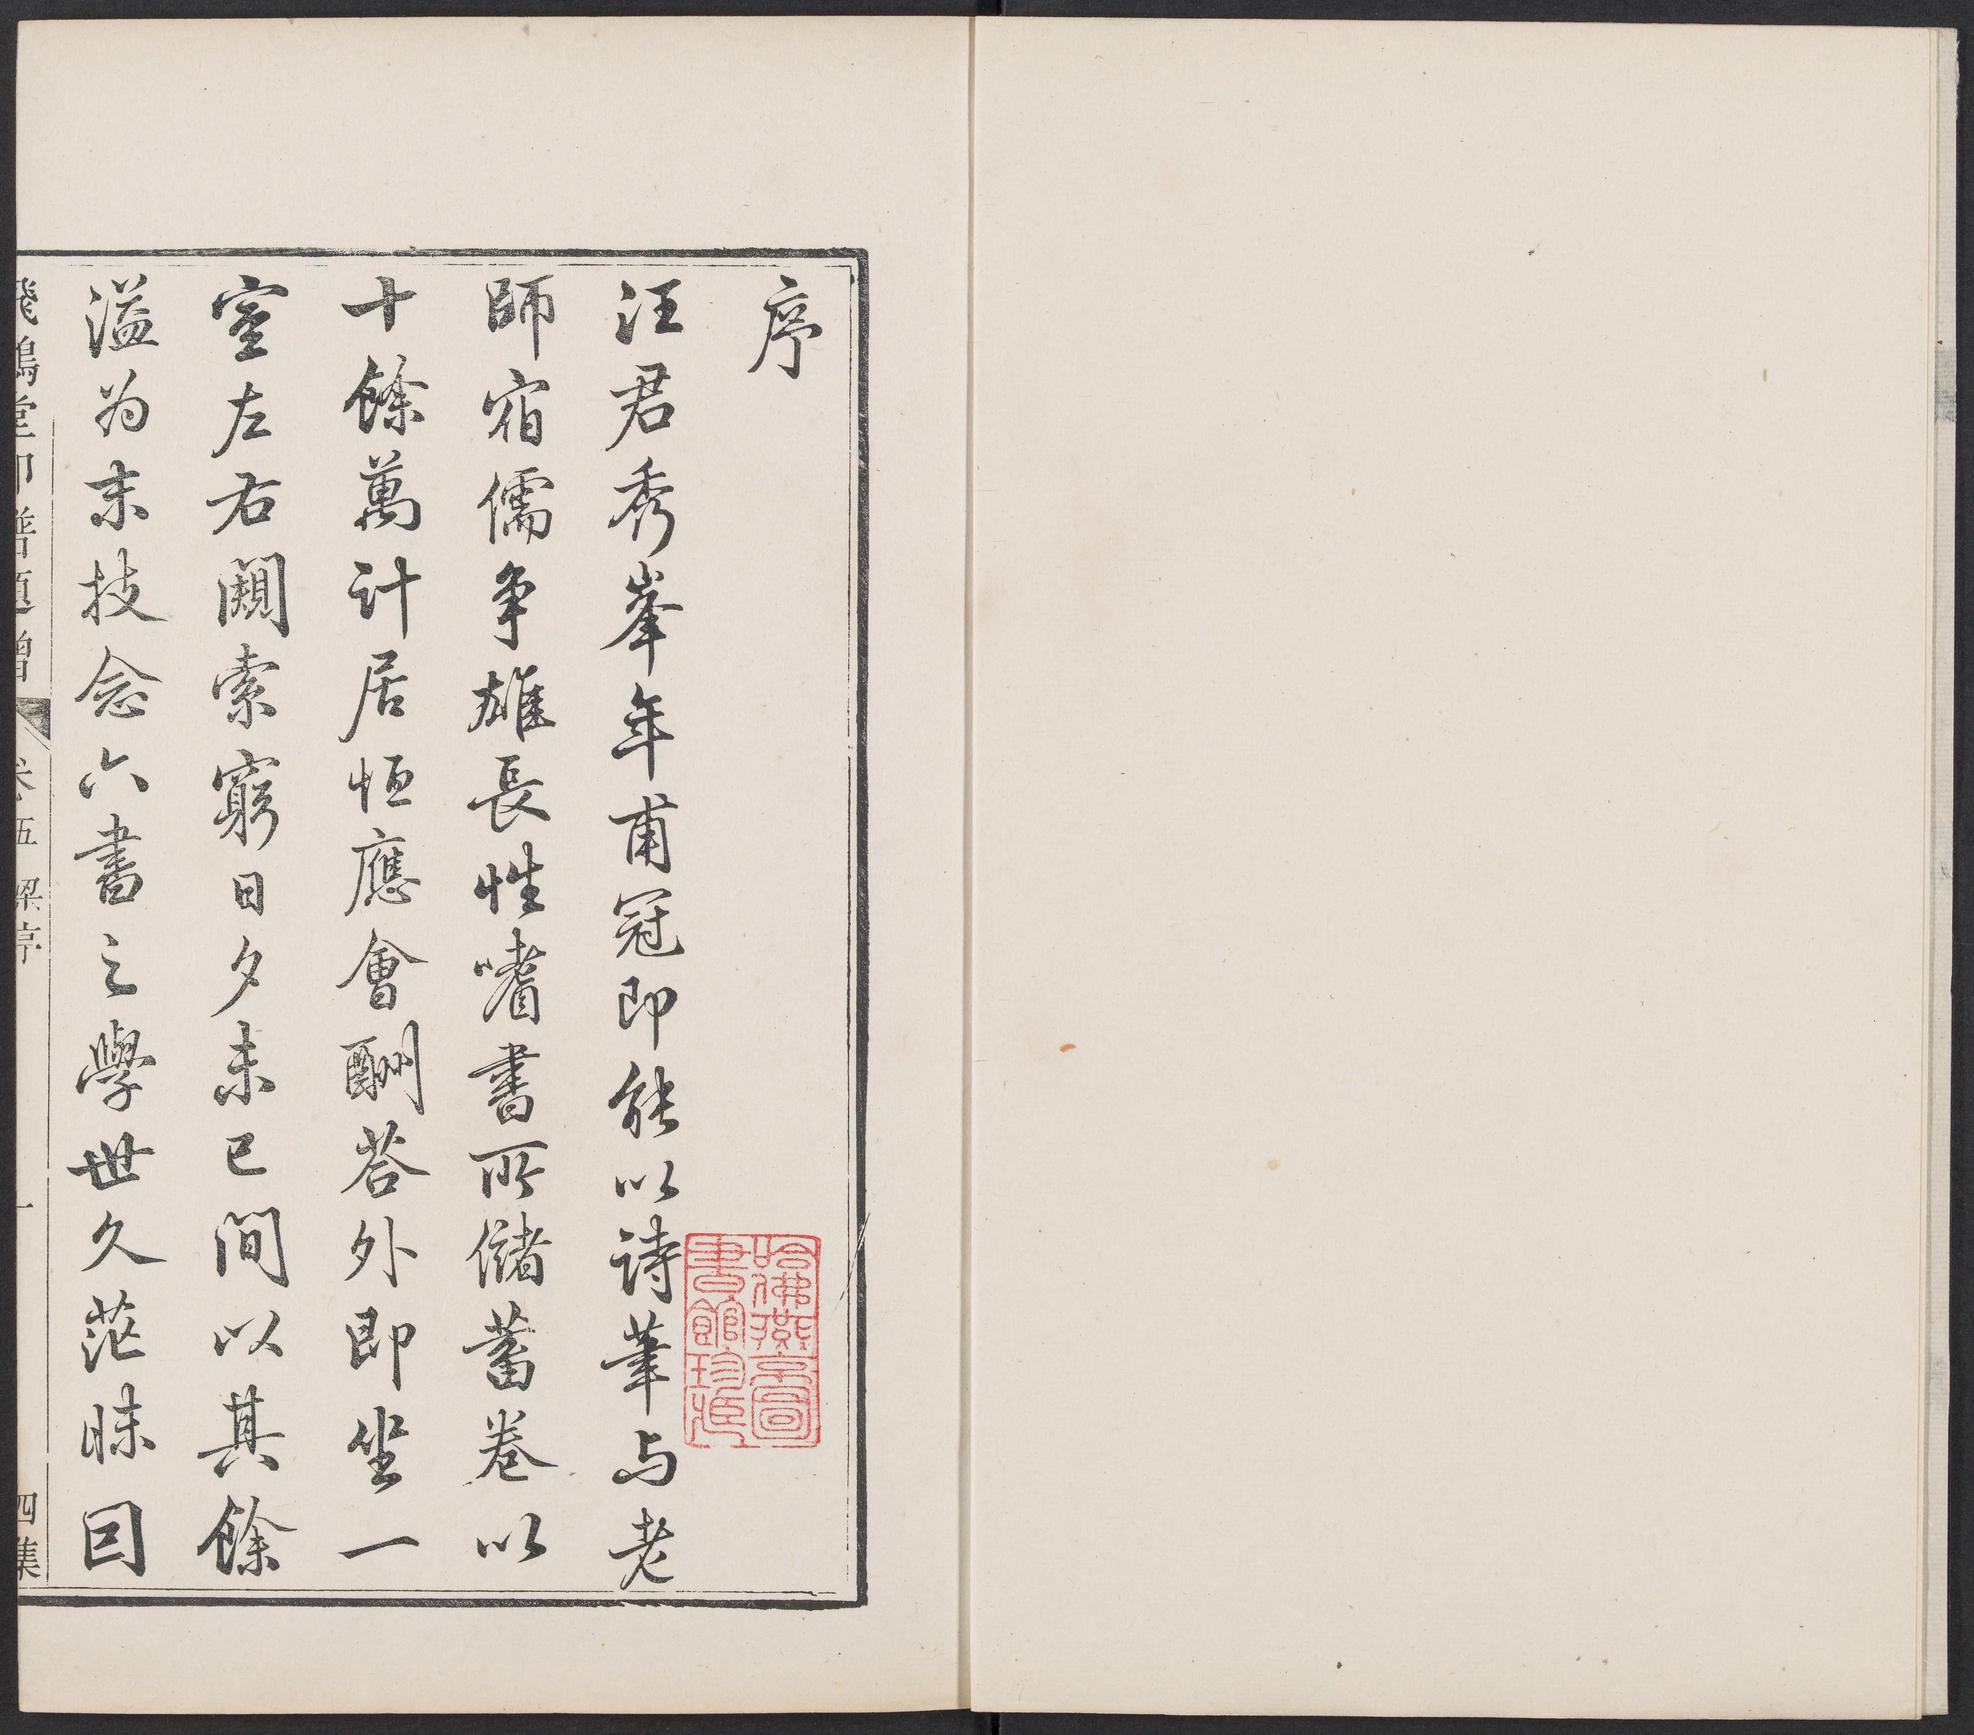 序
汪君秀峯年甫冠即能以詩筆与老
師宿儒争雄長性嗜書所儲蓄卷以
十餘萬計居恒應會酬荅外即坐一
室左右闚索窮日夕未已間以其餘
溢为末技念六書之學世久茫昧因
飛鴻堂印譜題贈 卷五 梁序 一 四集
哈佛燕京圖
書館珍藏